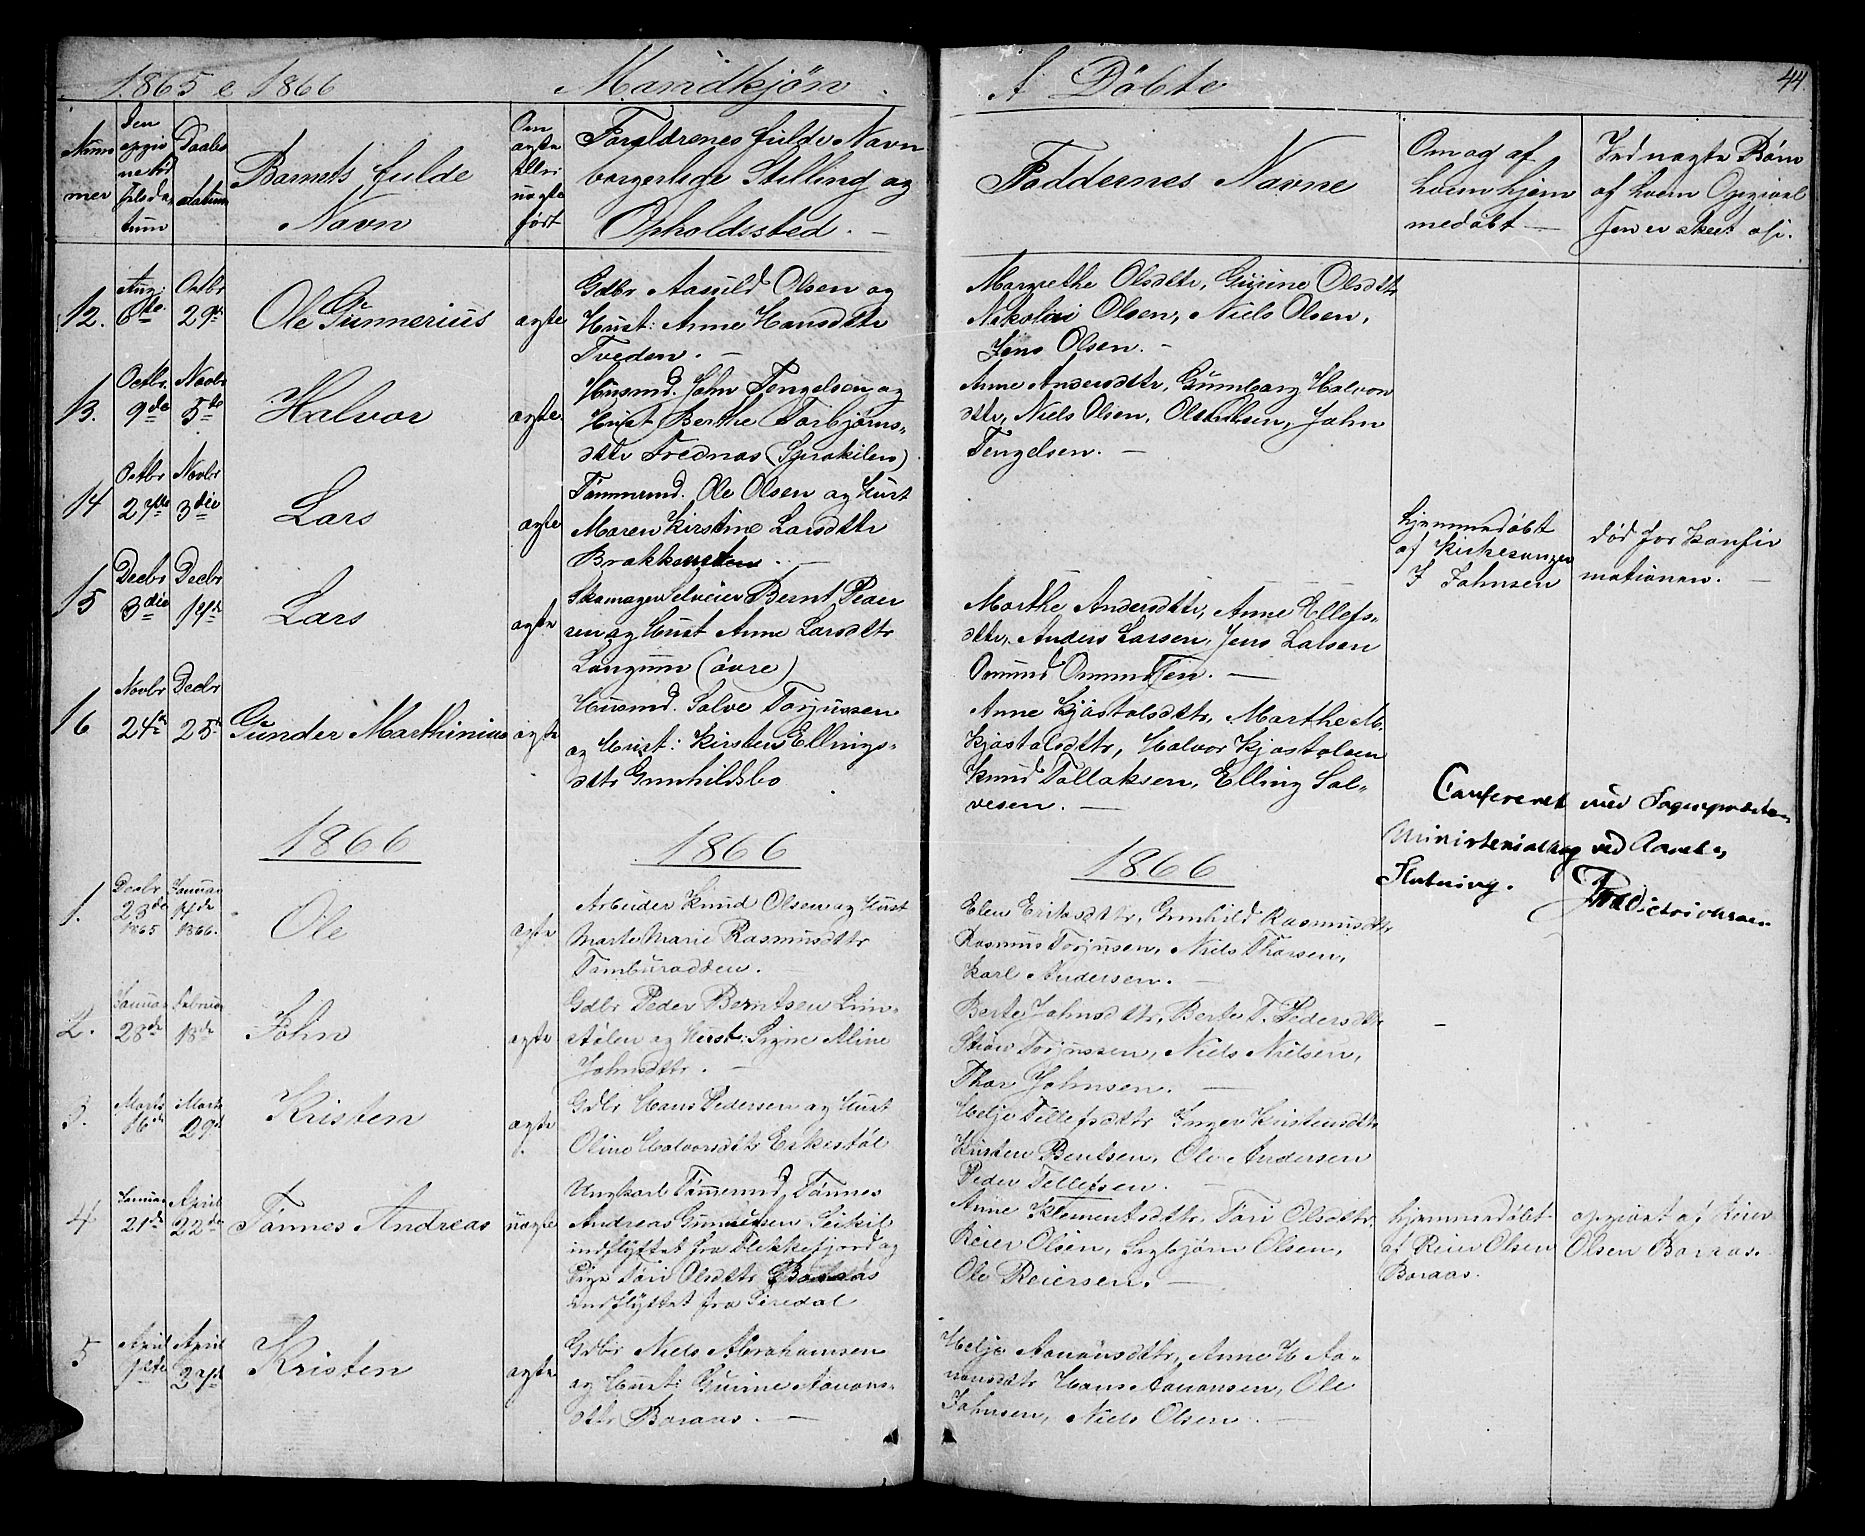 1865 & 1866 Mandkjön.
A. Döbte
44
Num
mer
Den
opgiv
ne Föd
selsda
tum
Daabs
datum
Barnets fulde
Navn
Om
ægte
eller
uægte
født
Forældrenes fulde Navn
borgerlige Stilling og
Opholdssted. —
Faddernes Navne
Om og af
hvem hjem
medöbt —
12. Aug: 6te Octbr 29de Ole Gunnerius ægte
Gdbr Aasuld Olsen og
Hust: Anne Hansdttr
Tveden. —
Margrethe Olsdttr, Gurine Olsdttr
Nikolai Olsen, Niels Olsen,
Jens Olsen. —
13. Octbr. 9de Novbr 5te Halvor ægte
Husmd. John Tengelsen og
Hust Berthe Torbjörns-
dttr Frednæs (Sprakilen)
Anne Andersdttr, Gunborg Halvors
dttr, Niels Olsen, John
Tengelsen. —
14 Octbr 27de Novbr 3die Lars ægte
Tömmermd. Ole Olsen og Hust
Maren Kirstine Larsdttr
hjemmedöbt
af Kirkesanger
J Johnsen
död för Konfir
mationen. —
15 Decbr 3die Decbr 17de Lars ægte
Skomager Selveier Bernt Peder
sen og Hust Anne Larsdttr
Langum (övre)
Marthe Andersdttr, Anne Ellefs-
dttr, Anders Larsen, Jens Larsen
Omund Omundsen. —
16 Novbr 24de Decbr 25de Gunder Marthinius ægte
Husmd. Salve Torjussen
og Hust: Kirsten Ellings-
dttr Gunhildsbo
Anne Kjöstolsdttr, Marthe M.
Kjöstolsdttr, Halvor Kjöstolsen
Knud Tollaksen, Elling Sal-
vesen. —
Confereret med Sognepræstens
Ministerialbog ved Aarets
Slutning.
1866
1866
1866
1. Decbr 28de 1865 Januar 14de 1866. Ole ægte
Arbeider Knud Olsen og Hust
Marte Marie Rasmusdttr
Elen Eriksdttr, Gunhild Rasmusdttr
Rasmus Torjusen, Niels Thorsen,
Karl Andersen. —
2. Januar 28de Februar 18de John ægte
Gdbr Peder Berntsen Lin-
stölen og Hust: Signe Aline
Johnsdttr. —
Berte Johnsdttr, Berte T. Pedersdttr
Torjussen, Niels Nielsen,
Thor Johnsen. —
3. Marts 16de Marts 29de Kristen ægte
Gdbr Hans Pedersen og Hust
Oline Halvorsdttr Eskestöl
Helje Tellefsdttr Inger Kristensdttr
Kristen Bentsen, Ole Andersen
Peder Tellefsen. —
4 Januar 21de April 22de Tönnes Andreas uægte
Ungkarl Tömermd Tönnes
Andreas Gundersen
indflyttet fra Flekkefjord og
Pige Töri Olsdttr Boraas
indflyttet fra Siredal
Anne Klementsdttr, Töri Olsdttr,
Reier Olsen, Sigbjörn Olsen,
Ole Reiersen. —
hjemmedöbt
af Reier Olsen
Boraas.
opgivet af Reier
Olsen Boraas.
5 April April 27de Kristen ægte
Gdbr Niels Abrahamsen
og Hust: Gurine Aanons-
dttr Boraas. —
Helje Aanonsdttr, Anne H Aa-
nonsdttr Hans Aanonsen, Ole
Johnsen, Niels Olsen.